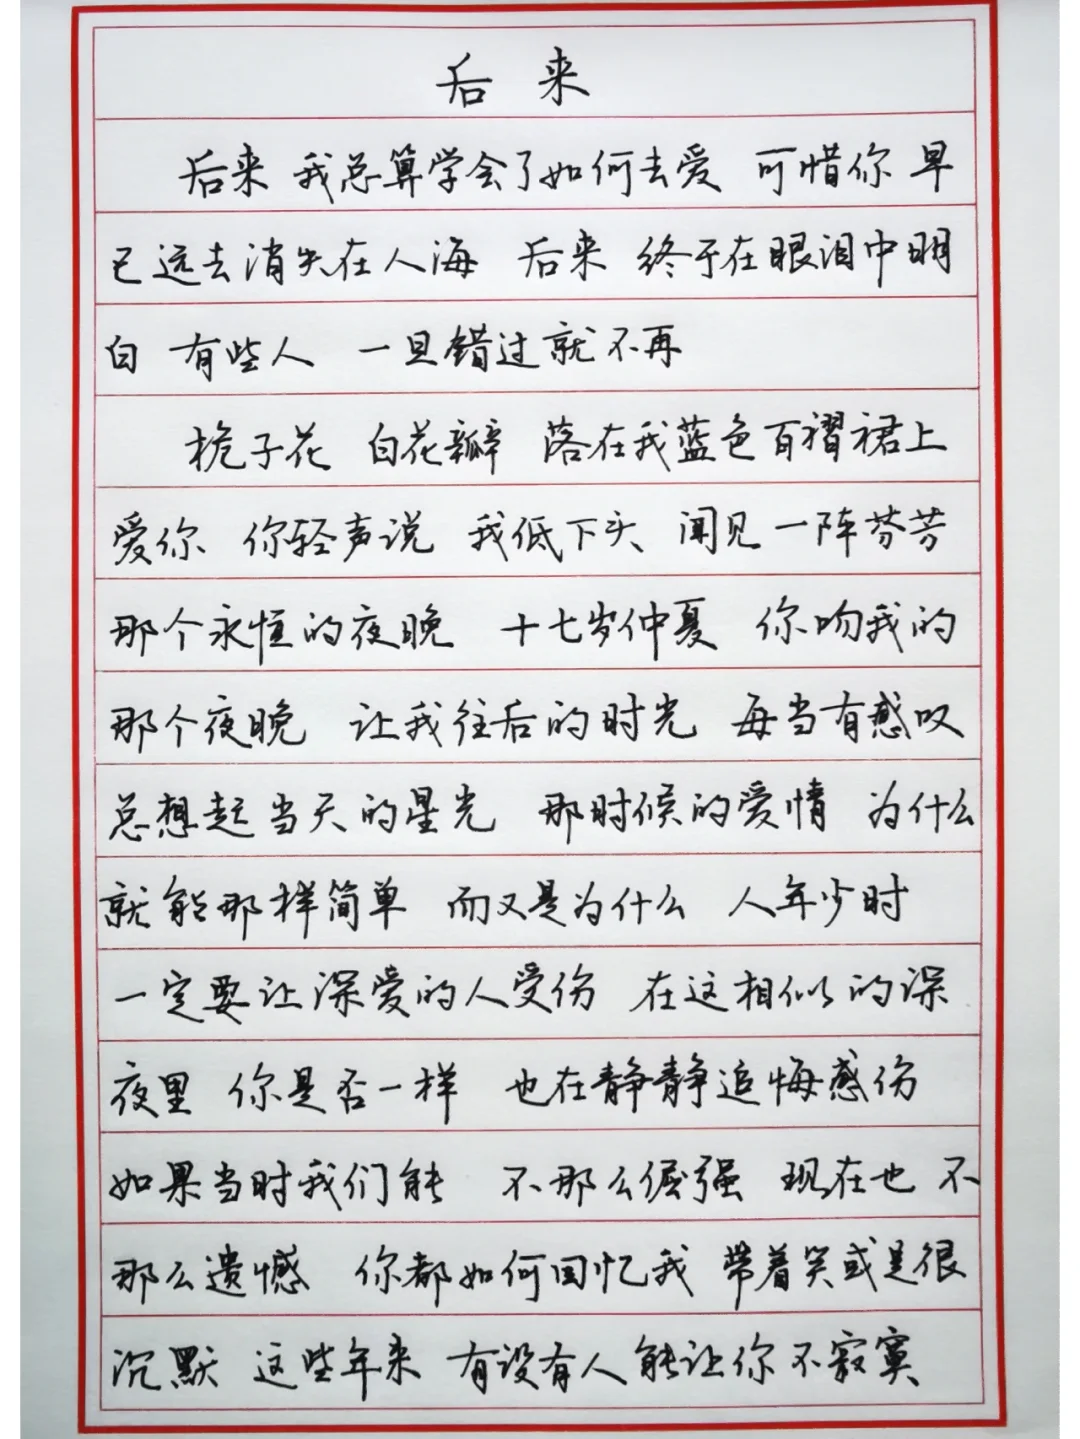 后来
后来 我总算学会了如何去爱 可惜你 早
已远去消失在人海 后来 终于在眼泪中明
白 有些人 一旦错过就不再
栀子花 白花瓣 落在我蓝色百褶裙上
爱你 你轻声说 我低下头 闻见一阵芬芳
那个永恒的夜晚 十七岁仲夏 你吻我的
那个夜晚 让我往后的时光 每当有感叹
总想起当天的星光 那时候的爱情 为什么
就能那样简单 而又是为什么 人年少时
一定要让深爱的人受伤 在这相似的深
夜里 你是否一样 也在静静追悔感伤
如果当时我们能 不那么倔强 现在也 不
那么遗憾 你都如何回忆我 带着笑或是很
沉默 这些年来 有没有人能让你不寂寞